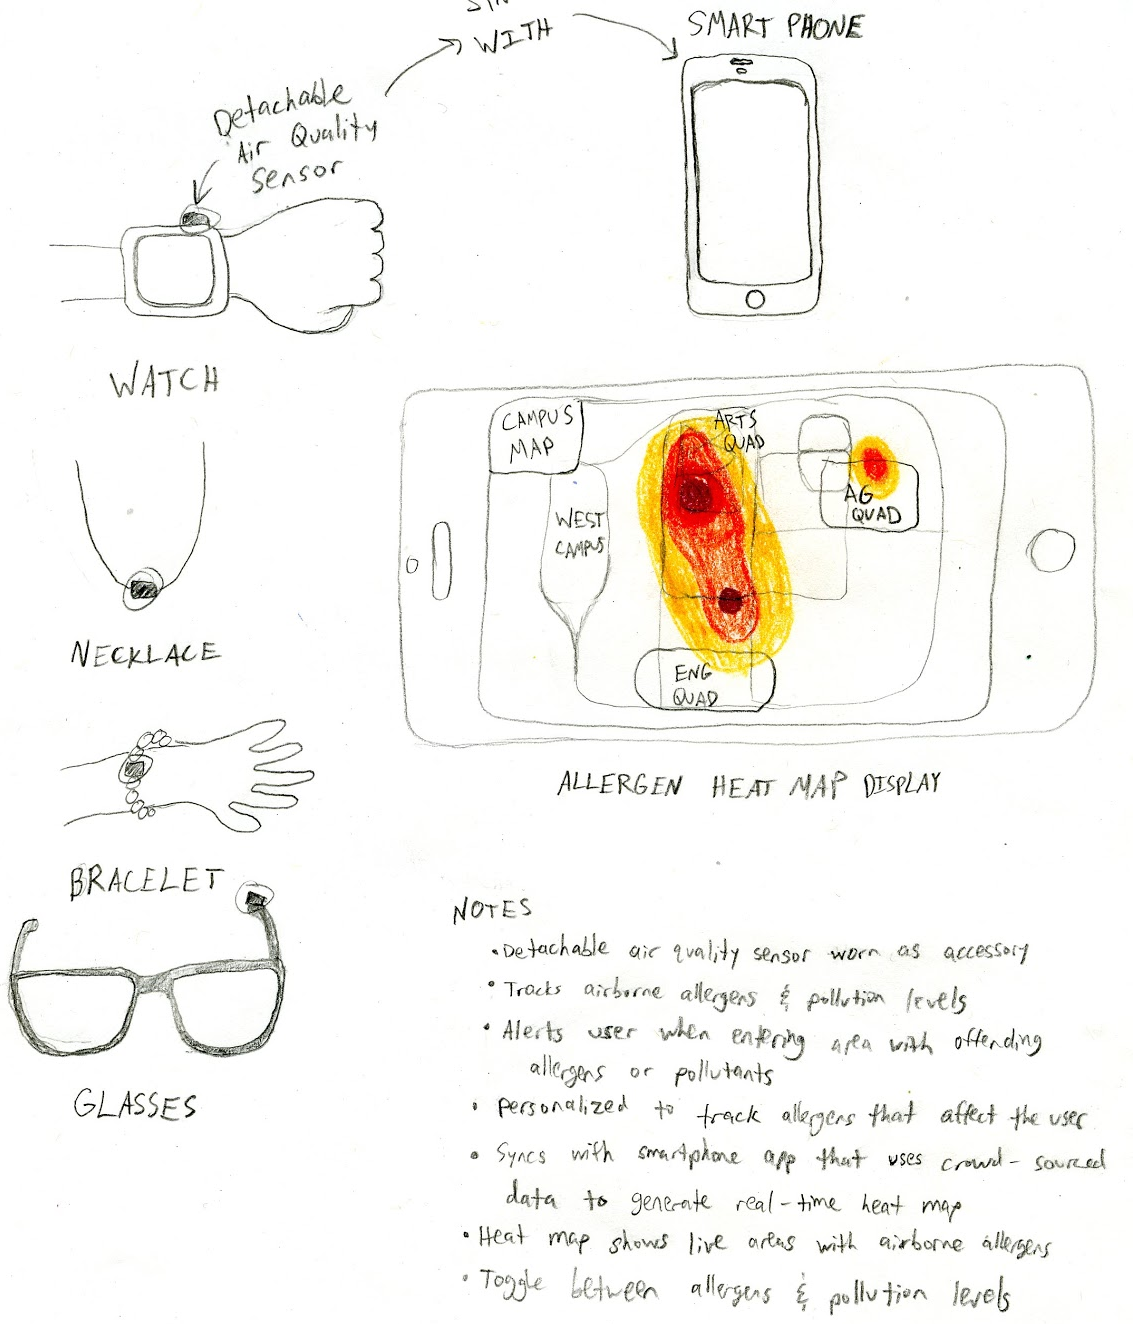 WITH
SMART PHONE
Detachable
Air Quality
Sensor
WATCH
CAMPUS
MAP
ARTS
QUAD
WEST
CAMPUS
AG
QUAD
ENG
QUAD
NECKLACE
ALLERGEN HEAT MAP DISPLAY
BRACELET
GLASSES
NOTES
• Detachable air quality sensor worn as accessory
• Tracks airborne allergens & pollution levels
• Alerts user when entering area with offending
allergens or pollutants
• personalized to track allergens that affect the user
• Syncs with smartphone app that uses crowd-sourced
data to generate real-time heat map
• Heat map shows live areas with airborne allergens
• Toggle between allergens & pollution levels